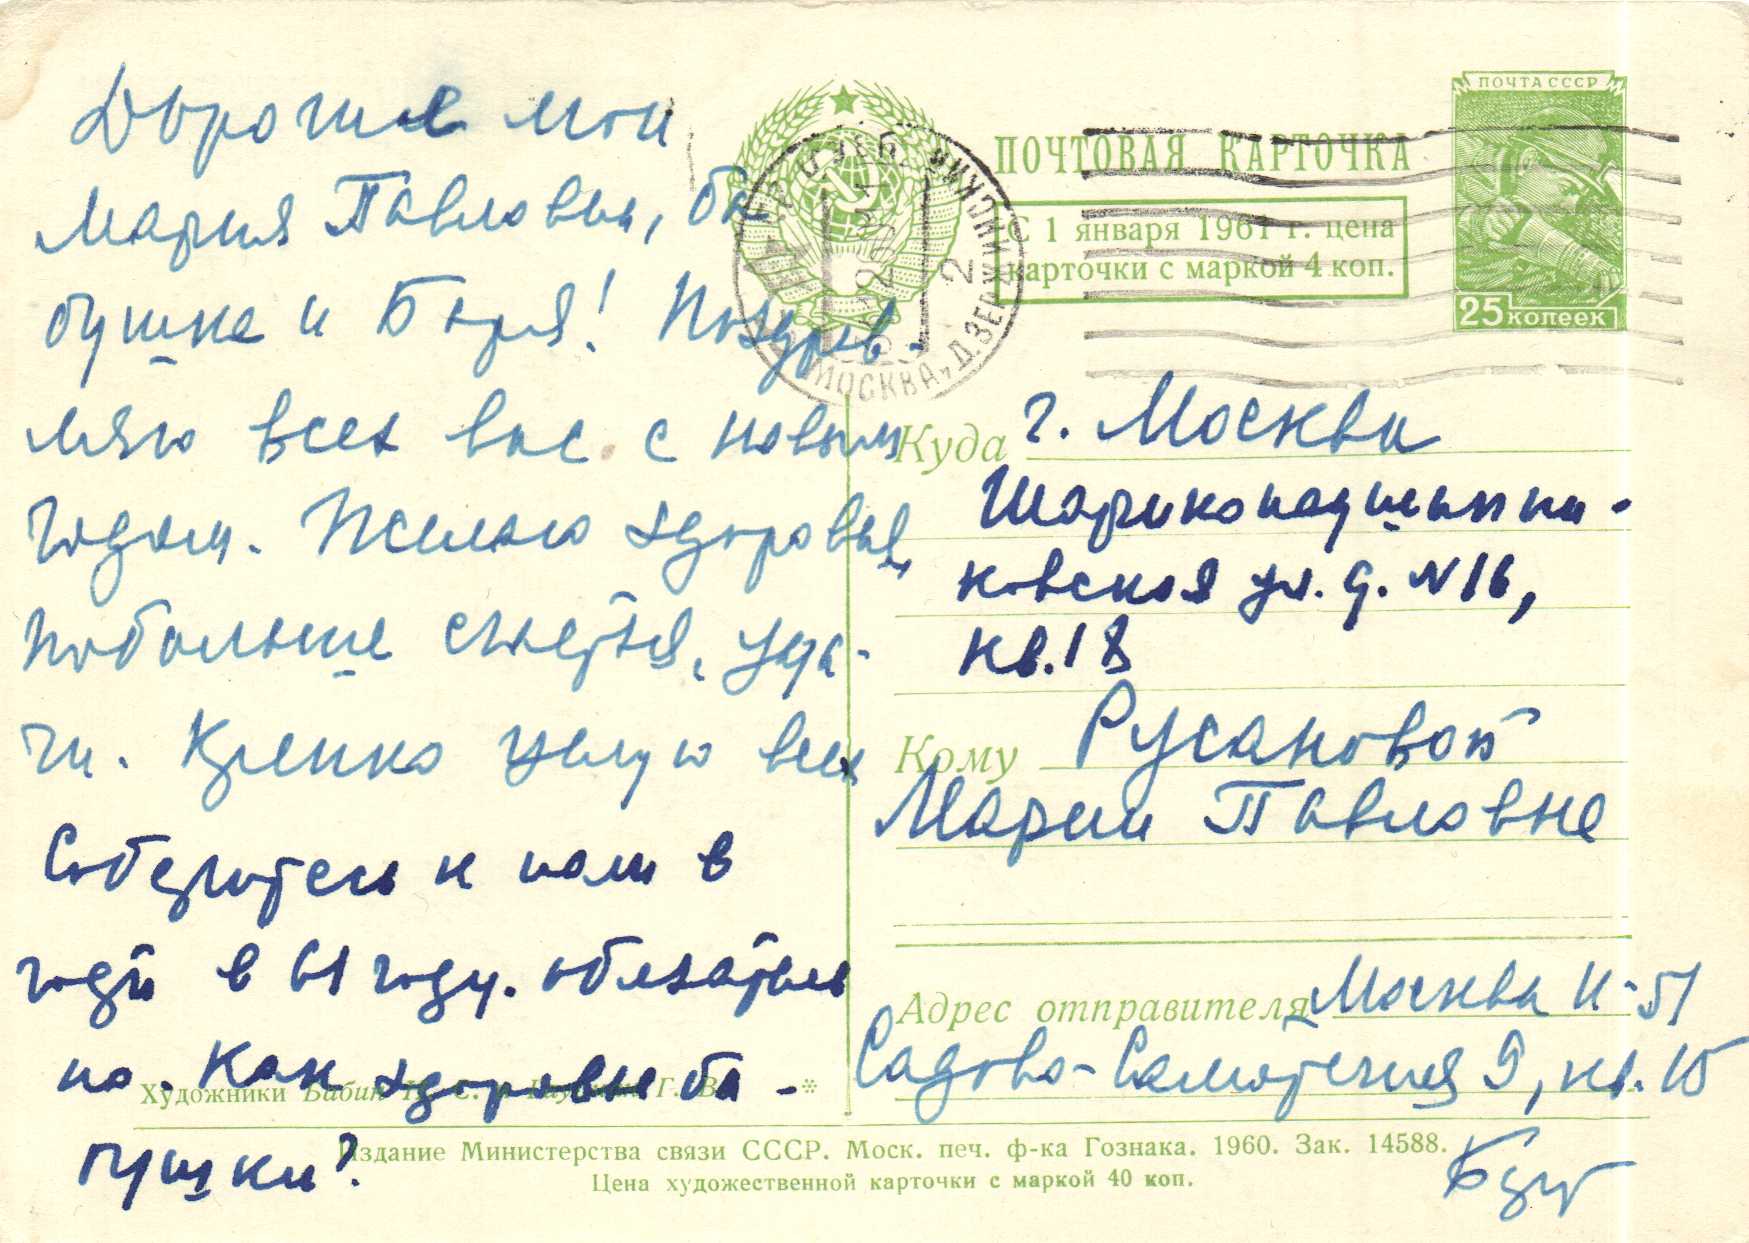 Дорогие мои
Мария Павловна, ба
бушка и Боря! Поздрав-
ляю всех вас с новым
годом. Желаю здоровья,
побольше счастья, уда-
чи. Крепко целую всех
Соберитесь к нам в
гости в 61 году. обязатель
но. Как здоровье ба-
бушки?
ПОЧТА СССР
25 копеек
ПОЧТОВАЯ КАРТОЧКА
С 1 января 1961 г. цена
карточки с маркой 4 коп.
МОСКВА, ДЗЕРЖИНСКИЙ
2
Куда г. Москва
Шарикоподшипни-
ковская ул. д. №16,
кв. 18
Кому Русановой
Марии Павловне
Адрес отправителя Москва К-51
Садово-Самотечная 9, кв. 15
Художники Бабин Н. С. и Г. В. *
Издание Министерства связи СССР. Моск. печ. ф-ка Гознака. 1960. Зак. 14588.
Цена художественной карточки с маркой 40 коп.